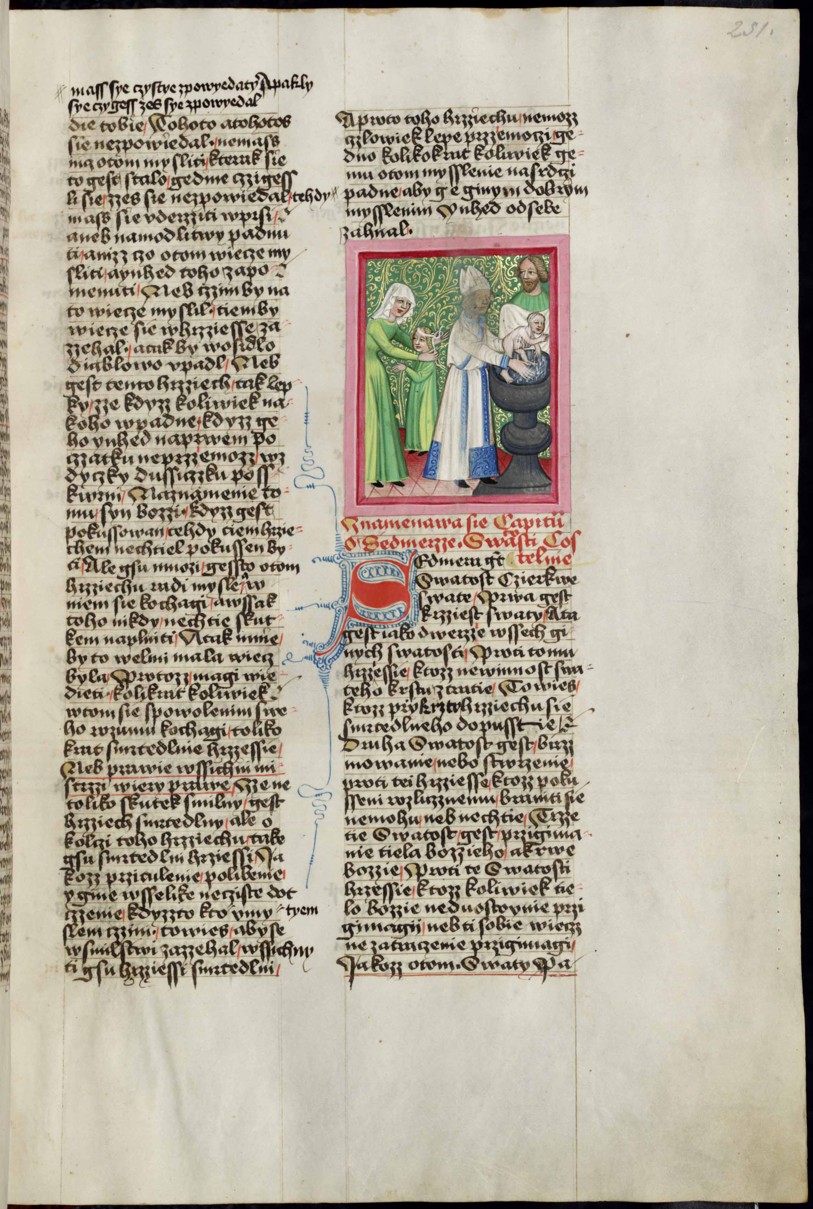 231.
mass sye czystye zpowyedaty Apakly
sye czygess zes sye zpowyedal
die tobie, Tohoto atohotos
sie nezpowiedal, nemass
na otom mysliti, kterak sie
to gest stalo, gedine czzigess
li sie, zzes sie nezpowiedal, tehdy
mass sie vderzziti wprsi,
aneb namodlitwy padnu
ti, anizz czo otom wiecze my
sliti, aynhed toho zapo
menuti, Neb czzim by na
to wiecze myslil, tiem by
wiecze sie whrziesse za
zzehal, atak by wosidlo
diablowo vpadl, Neb
gest tento hrzziech, tak lep
ky, zze kdyzz koliwiek na
koho wpadne, kdyzz ge
ho ynhed naprwem po
czzatku neprzzemozz, wz
dyczky dussiczku poss
kwrni, Naznamenie to
mu syn bozzi, kdyzz gest
pokussowan, tehdy tiem hrzie
chem nechtiel pokussen by
ti, Ale gsu mnozi, gessto otom
hrzziechu radi mysle, w
niem sie kochagi, awssak
toho nikdy, nechtie skut
kem naplniti, Atak mnie,
by to welmi mala wiecz
byla, Protozz magi wie
dieti, kolikrat koliwiek
wtom sie spowolenim swe
ho rozumu kochagi, toliko
krat smrtedlnie hrzzessie,
Neb prawie wssichni mi
strzzi wiery prawe, Zze ne
toliko skutek smilny, gest
hrzziech smrtedlny, ale o
kolczi toho hrzziechu, take
gsu smrtedlni hrziessi, Ja
kozz przitulenie, polibenie,
y gine wsselike necziste dot
czzenie, kdyzzto kto vmy tyem
slem czzini, towies, aby se
wsmilstwi zazzehal, wssichny
ti gsu hrzziessi smrtedlni,
Aproto toho hrzziechu, nemozz
czlowiek lepe przzemoczi, ge
dno kolikokrat koliwiek ge
mu otom mysslenie nasrdczi
padne, aby ge ginym dobrym
mysslenim ynhed odsebe
zahnal.
Znamenawa sie Capitu
o Sedmerzze, Swatosti Cos
telnie
SEdmera gest
Swatost Czierkwe
swate, Prwa gest
krzziest swaty, Ata
gest iako dwerzze wssech gi
nych swatosti, Proti tomu
hrzessie, ktozz newinnost swa
teho krstu ztratie, Towies,
ktozz prykrztu hrzziechu sie
smrtedlneho dopusstie
Druha Swatost gest, birzz
mowanie, nebo stwrzenie,
proti tei hrzziesse, ktozz poku
sseni rozlicznemu, braniti sie
nemohu, neb nechtie, Trze
tie Swatost, gest, przigima
nie tiela bozzieho, akrwe
bozzie, Proti te Swatosti
hrzessie, ktozz koliwiek tie
lo bozzie neduostoynie przi
gimagij, neb ti sobie wiecz
ne zatraczenie przigimagi,
Jakozz otom, Swaty Pa